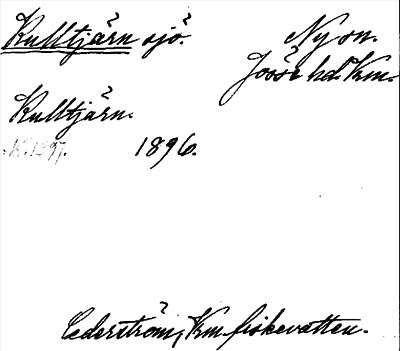 Kulltjärn sjö.
Ny sn.
Jösse hd. Vrm.
Kulltjärn.
1896.
Cederström, Vrm. fiskevatten.